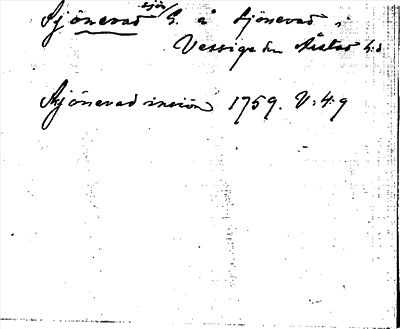 Sjönevad sjön/ S. å Sjönevad i
Vessige sn Årstad h:d
Sjönevad insiön 1759. V:4:9